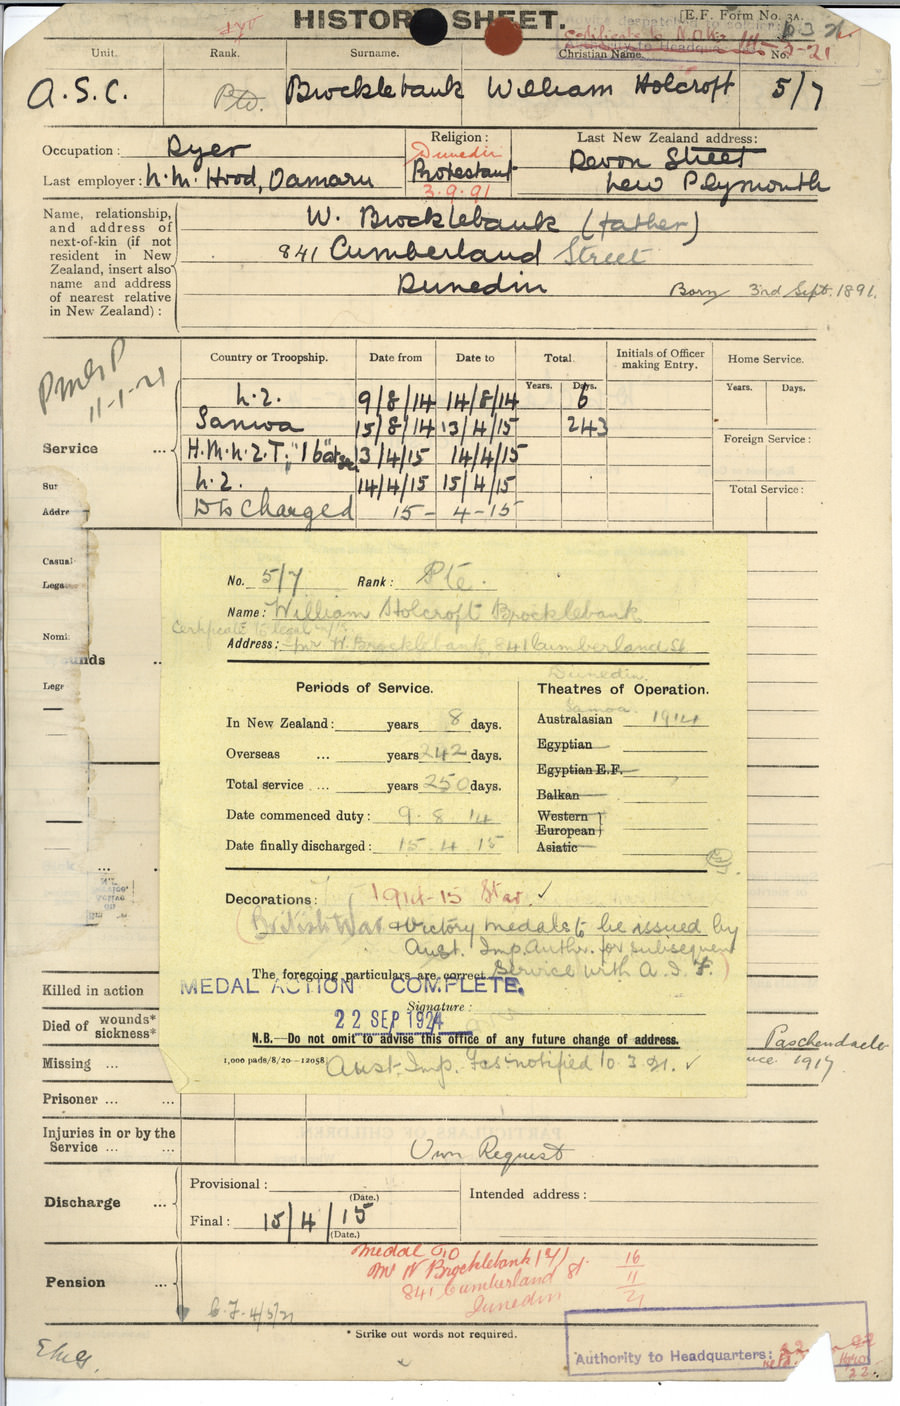 HISTORY SHEET.
[E.F. Form No. 3A.
Unit. Rank. Surname. Christian Name. No.
A.S.C. Pte. Brocklebank William Holcroft 5/7
Occupation: Dyer
Religion:
Dunedin
Protestant
3.9.91
Last New Zealand address:
Devon Street
New Plymouth
Last employer: N.M. Hood, Oamaru
Name, relationship, and address of next-of-kin (if not resident in New Zealand, insert also name and address of nearest relative in New Zealand):
W. Brocklebank (father)
841 Cumberland Street
Dunedin
Born 3rd Sept. 1891.
11-1-21
Country or Troopship. Date from Date to Total. Initials of Officer making Entry. Home Service.
Years. Days. Years. Days.
N.Z. 9/8/14 14/8/14 6
Samoa 15/8/14 13/4/15 243
Foreign Service:
Service ...
H.M.N.Z.T. 13/4/15 14/4/15
N.Z. 14/4/15 15/4/15
Total Service:
Discharged 15-4-15
No. 5/7 Rank: Pte.
Name: William Holcroft Brocklebank
Address: 841 Cumberland St
Dunedin
Periods of Service. Theatres of Operation.
Samoa.
In New Zealand: years 8 days. Australasian 1914
Overseas ... years 242 days. Egyptian
Total service ... years 250 days. Egyptian E.F.
Balkan
Date commenced duty: 9.8.14 Western European
Date finally discharged: 15.4.15 Asiatic
Decorations: 1914-15 Star. ✓
(British War & Victory medals to be issued by
Aust. Imp. Auth. for subsequent
The foregoing particulars are correct service with A.I.F.)
MEDAL ACTION COMPLETE.
Signature:
22 SEP 1924
N.B.—Do not omit to advise this office of any future change of address.
1,000 pads/8/20—12058]
Aust. Imp. notified 10.3.21. ✓
Killed in action
Died of wounds* sickness*
Paschendaele
1917
Missing ...
Prisoner ...
Injuries in or by the Service ...
Own Request
Discharge ...
Provisional: (Date.)
Intended address:
Final: 15/4/15 (Date.)
Medal
Mr W Brocklebank (f)
841 Cumberland St.
Dunedin
16/11/21
Pension ...
* Strike out words not required.
Authority to Headquarters: